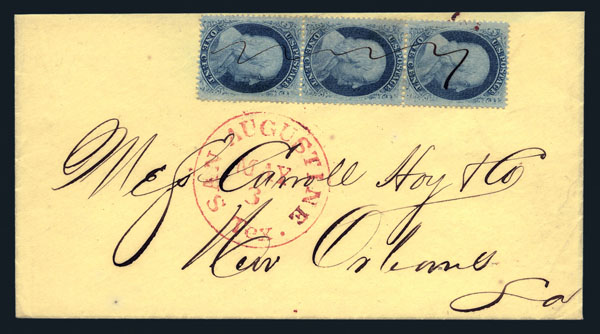 U.S. POSTAGE ONE CENT U.S. POSTAGE ONE CENT U.S. POSTAGE ONE CENT
SAN AUGUSTINE
MAY
3
Tex.
Mess Carroll Hoy & Co
New Orleans
La